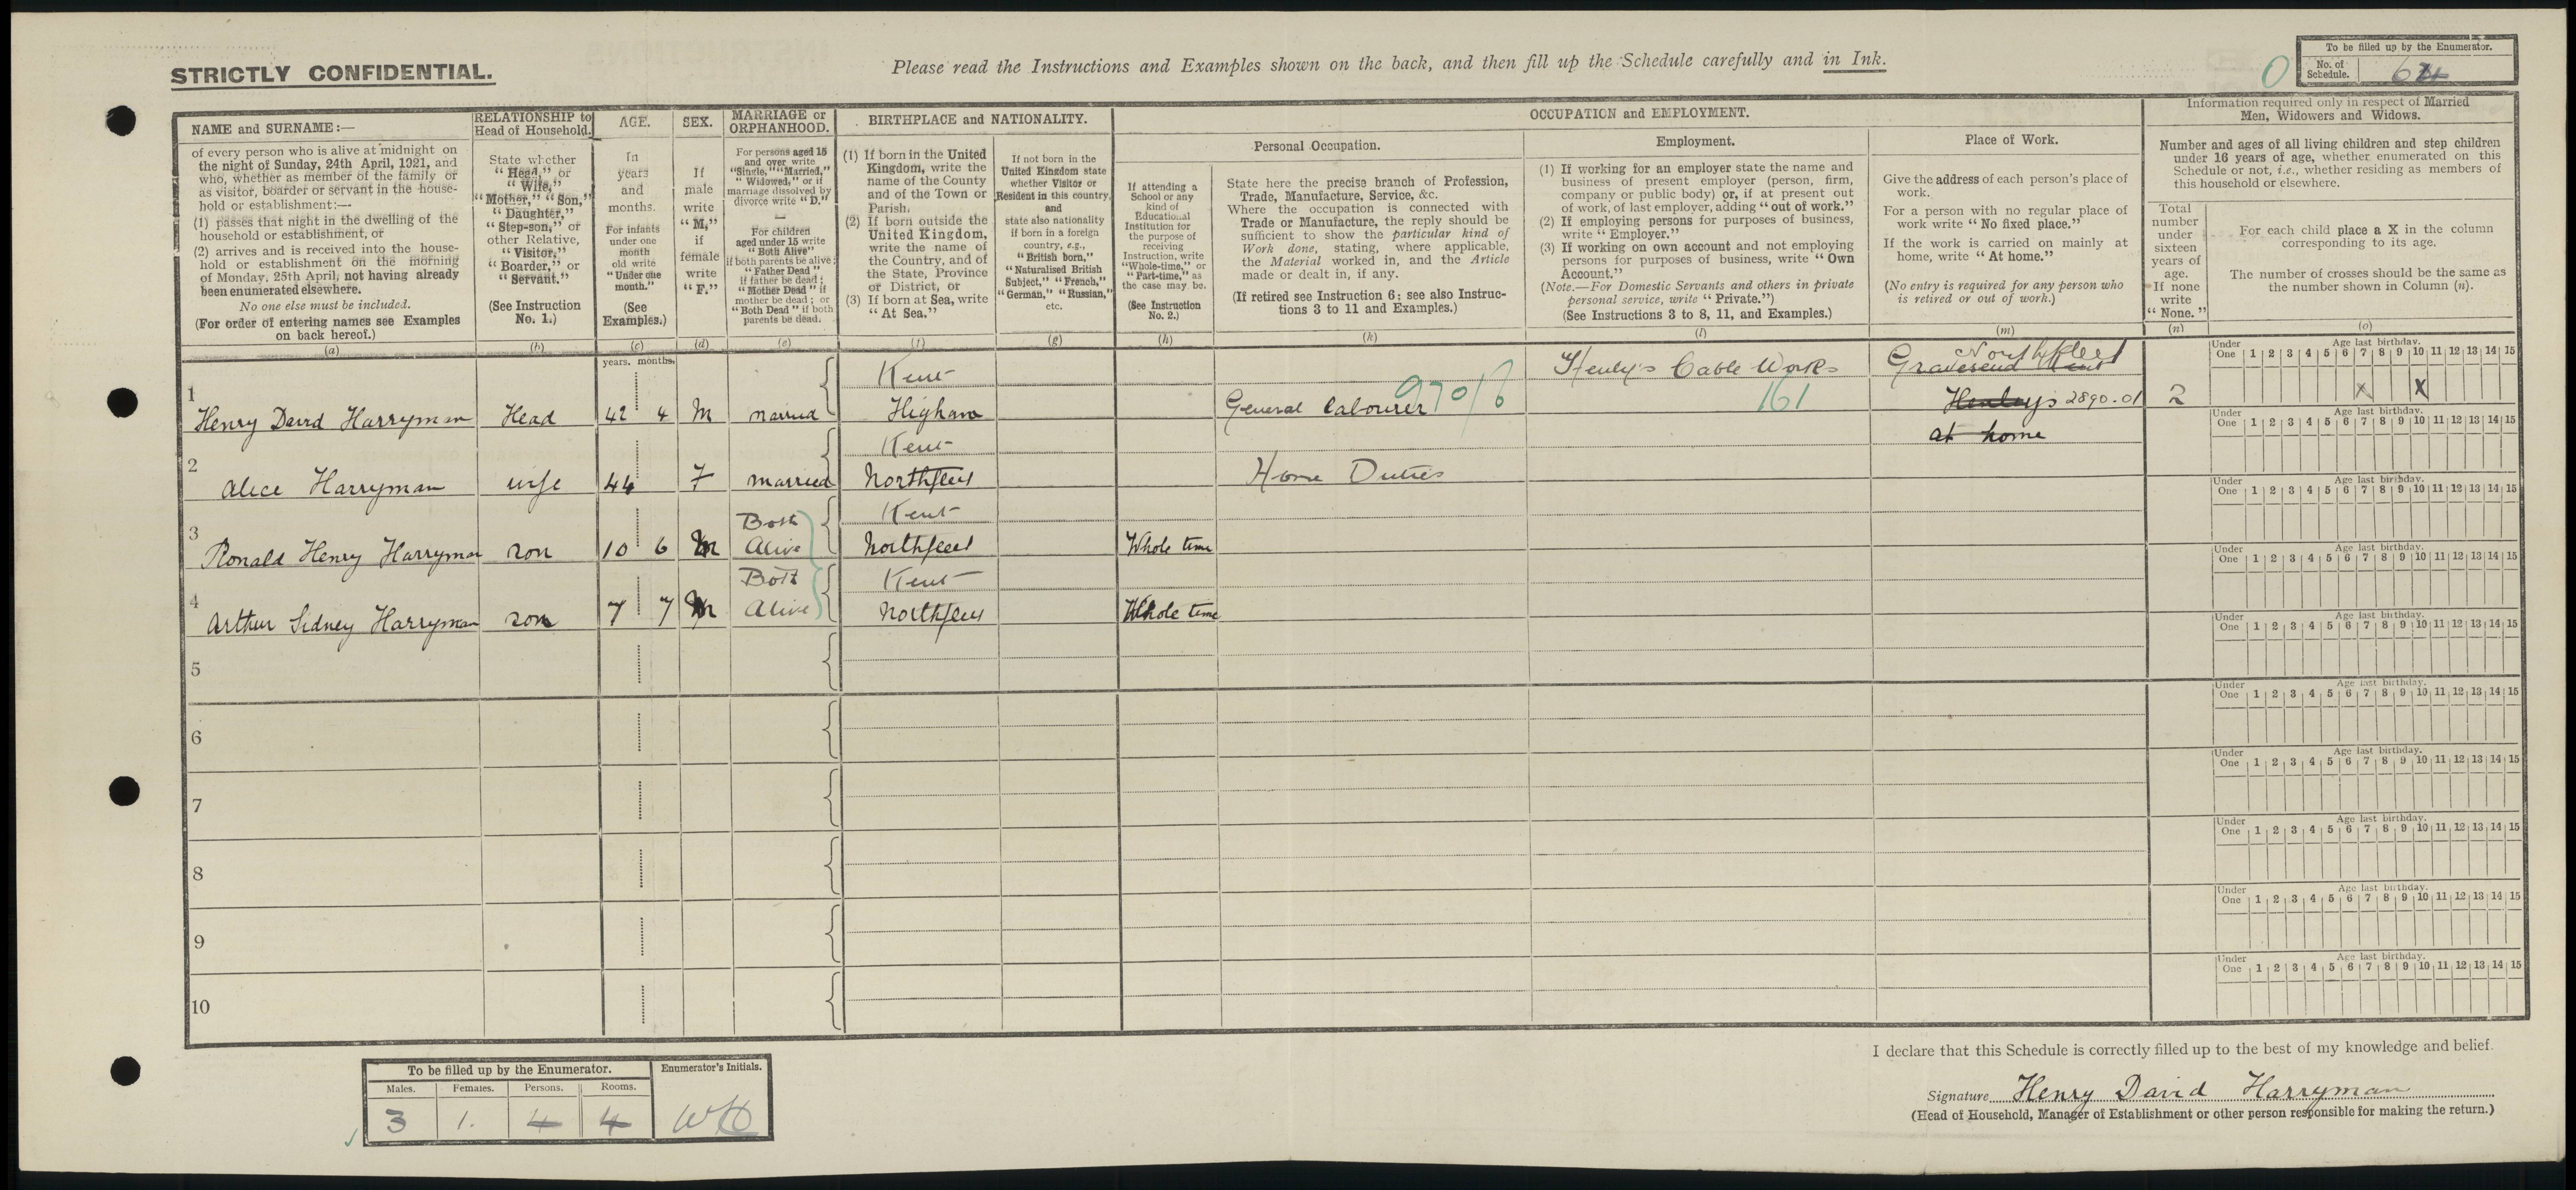 STRICTLY CONFIDENTIAL.
Please read the Instructions and Examples shown on the back, and then fill up the Schedule carefully and in Ink.
To be filled up by the Enumerator.
No. of Schedule.
0
NAME and SURNAME:—
of every person who is alive at midnight on
the night of Sunday, 24th April, 1921, and
who, whether as member of the family or
as visitor, boarder or servant in the house-
hold or establishment:—
(1) passes that night in the dwelling of the
household or establishment, or
(2) arrives and is received into the house-
hold or establishment on the morning
of Monday, 25th April, not having already
been enumerated elsewhere.
No one else must be included.
(For order of entering names see Examples
on back hereof.)
(a)
RELATIONSHIP to
Head of Household.
State whether
"Head," or
"Wife,"
"Mother," "Son,"
"Daughter,"
"Step-son," or
other Relative,
"Visitor,"
"Boarder," or
"Servant."
(See Instruction
No. 1.)
(b)
AGE.
In
years
and
months.
For infants
under one
month
old write
"Under one
month."
(See
Examples.)
(c)
years. months.
SEX.
If
male
write
"M,"
if
female
write
"F."
(d)
MARRIAGE or
ORPHANHOOD.
For persons aged 15
and over write
"Single," "Married,"
"Widowed," or if
marriage dissolved by
divorce write "D."
—
For children
aged under 15 write
"Both Alive"
if both parents be alive;
"Father Dead"
if father be dead;
"Mother Dead" if
mother be dead; or
"Both Dead" if both
parents be dead.
(e)
BIRTHPLACE and NATIONALITY.
(1) If born in the United
Kingdom, write the
name of the County
and of the Town or
Parish.
(2) If born outside the
United Kingdom,
write the name of
the Country, and of
the State, Province
or District, or
(3) If born at Sea, write
"At Sea."
(f)
If not born in the
United Kingdom state
whether Visitor or
Resident in this country,
and
state also nationality
if born in a foreign
country, e.g.,
"British born,"
"Naturalised British
Subject," "French,"
"German," "Russian,"
etc.
(g)
OCCUPATION and EMPLOYMENT.
Personal Occupation.
If attending a
School or any
kind of
Educational
Institution for
the purpose of
receiving
Instruction, write
"Whole-time," or
"Part-time," as
the case may be.
(See Instruction
No. 2.)
(h)
State here the precise branch of Profession,
Trade, Manufacture, Service, &c.
Where the occupation is connected with
Trade or Manufacture, the reply should be
sufficient to show the particular kind of
Work done, stating, where applicable,
the Material worked in, and the Article
made or dealt in, if any.
(If retired see Instruction 6; see also Instruc-
tions 3 to 11 and Examples.)
(k)
Employment.
(1) If working for an employer state the name and
business of present employer (person, firm,
company or public body) or, if at present out
of work, of last employer, adding "out of work."
(2) If employing persons for purposes of business,
write "Employer."
(3) If working on own account and not employing
persons for purposes of business, write "Own
Account."
(Note.—For Domestic Servants and others in private
personal service, write "Private.")
(See Instructions 3 to 8, 11, and Examples.)
(l)
Place of Work.
Give the address of each person's place of
work.
For a person with no regular place of
work write "No fixed place."
If the work is carried on mainly at
home, write "At home."
(No entry is required for any person who
is retired or out of work.)
(m)
Information required only in respect of Married
Men, Widowers and Widows.
Number and ages of all living children and step children
under 16 years of age, whether enumerated on this
Schedule or not, i.e., whether residing as members of
this household or elsewhere.
Total
number
under
sixteen
years of
age.
If none
write
"None."
(n)
For each child place a X in the column
corresponding to its age.
The number of crosses should be the same as
the number shown in Column (n).
(o)
Age last birthday.
Under One 1 2 3 4 5 6 7 8 9 10 11 12 13 14 15
1
Henry David Harryman Head 42 4 M married
Kent
Higham
General Labourer 970/6
Henly's Cable Works
161
Northfleet
Gravesend Kent
Henleys 2890.01
2
X X
Age last birthday.
Under One 1 2 3 4 5 6 7 8 9 10 11 12 13 14 15
2
Alice Harryman wife 44 F married
Kent
Northfleet
Home Duties
at home
Age last birthday.
Under One 1 2 3 4 5 6 7 8 9 10 11 12 13 14 15
3
Ronald Henry Harryman son 10 6 M
Both
Alive
Kent
Northfleet
Whole time
Age last birthday.
Under One 1 2 3 4 5 6 7 8 9 10 11 12 13 14 15
4
Arthur Sidney Harryman son 7 7 M
Both
Alive
Kent
Northfleet
Whole time
Age last birthday.
Under One 1 2 3 4 5 6 7 8 9 10 11 12 13 14 15
5
Age last birthday.
Under One 1 2 3 4 5 6 7 8 9 10 11 12 13 14 15
6
Age last birthday.
Under One 1 2 3 4 5 6 7 8 9 10 11 12 13 14 15
7
Age last birthday.
Under One 1 2 3 4 5 6 7 8 9 10 11 12 13 14 15
8
Age last birthday.
Under One 1 2 3 4 5 6 7 8 9 10 11 12 13 14 15
9
Age last birthday.
Under One 1 2 3 4 5 6 7 8 9 10 11 12 13 14 15
10
To be filled up by the Enumerator.
Enumerator's Initials.
Males. Females. Persons. Rooms.
3 1. 4 4
I declare that this Schedule is correctly filled up to the best of my knowledge and belief.
Signature Henry David Harryman
(Head of Household, Manager of Establishment or other person responsible for making the return.)